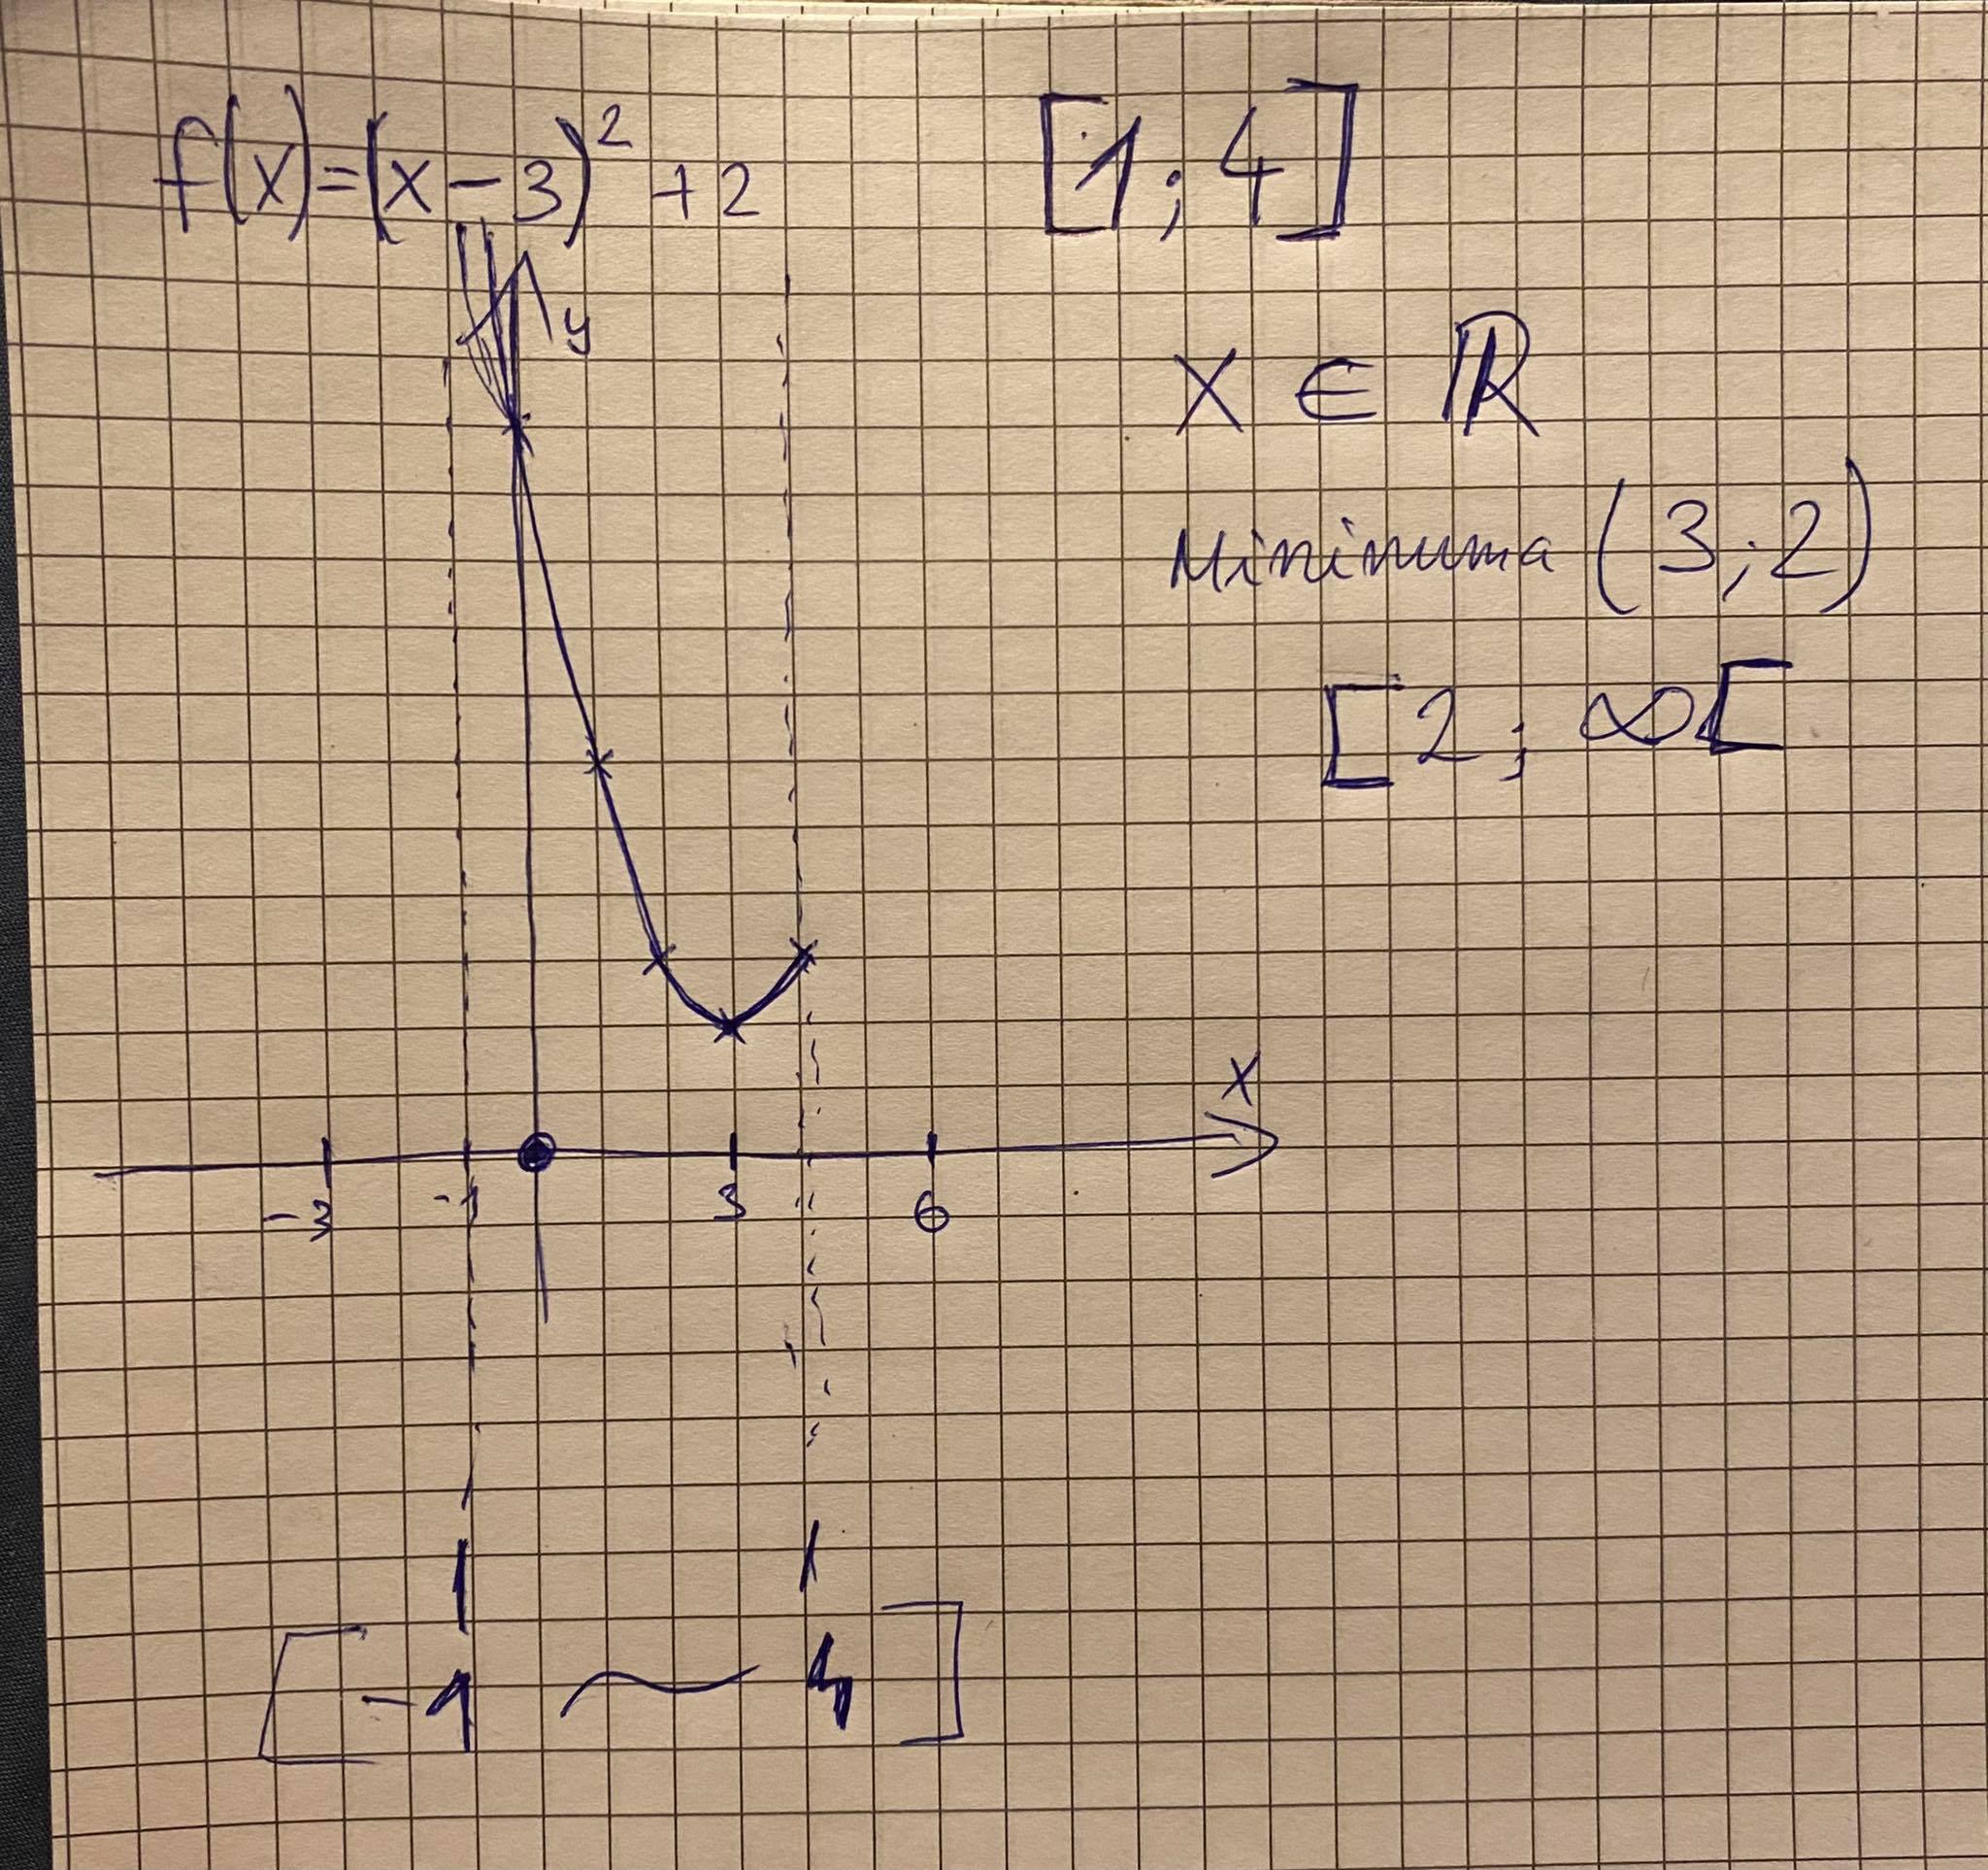 f(x)=(x-3)² +2 [1;4]
y
x ∈ ℝ
Minimuma (3;2)
[2; ∞[
x
-3 -1 3 6
[-1 ~ 4]